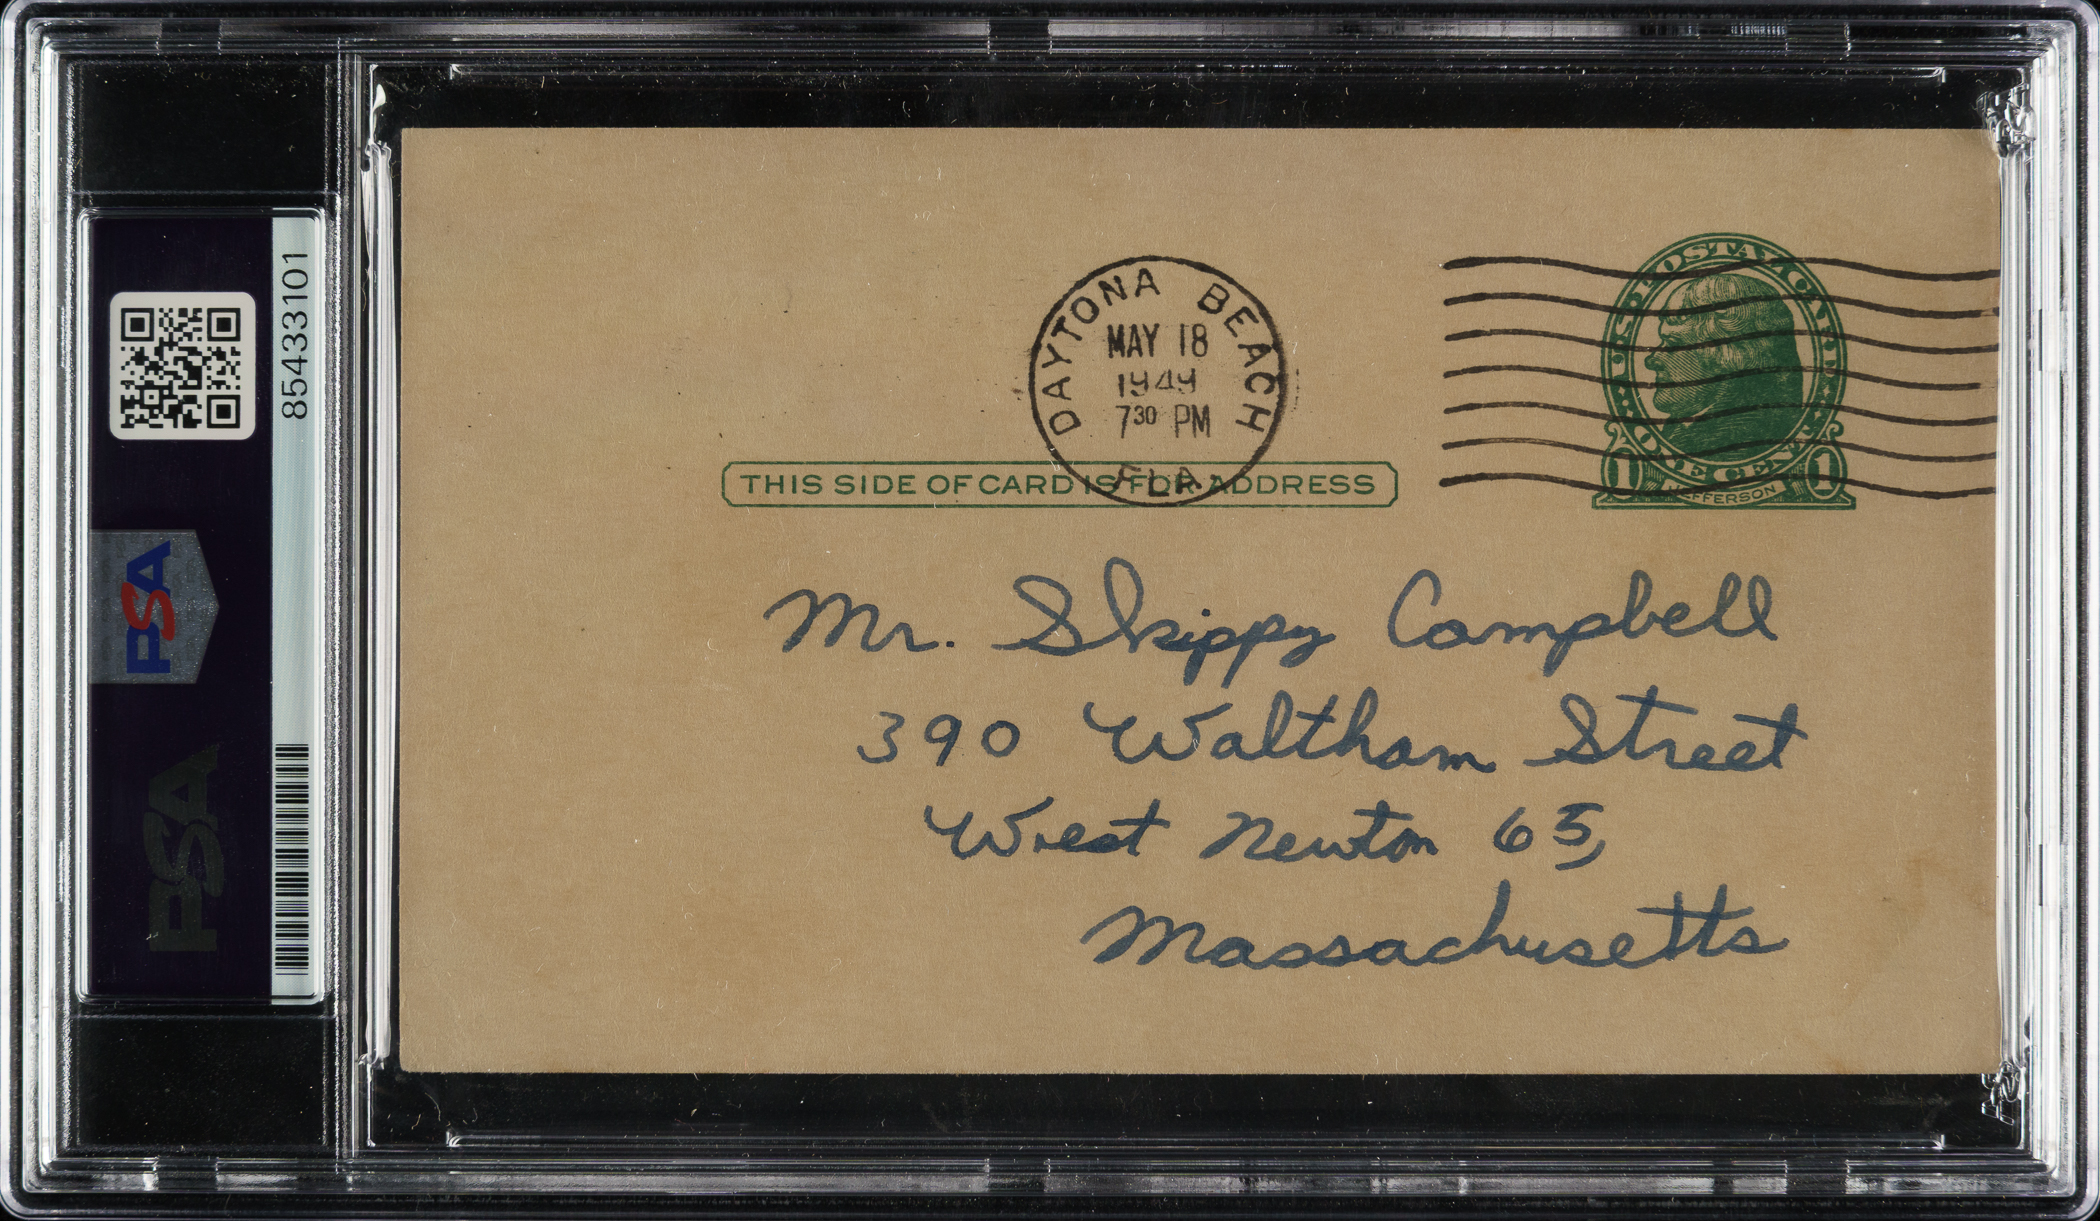 85433101
PSA
PSA
DAYTONA BEACH
MAY 18
1949
7 30 PM
FLA
U·S·POSTAL CARD
ONE CENT
1 1
JEFFERSON
THIS SIDE OF CARD IS FOR ADDRESS
Mr. Skippy Campbell
390 Waltham Street
West Newton 65,
Massachusetts